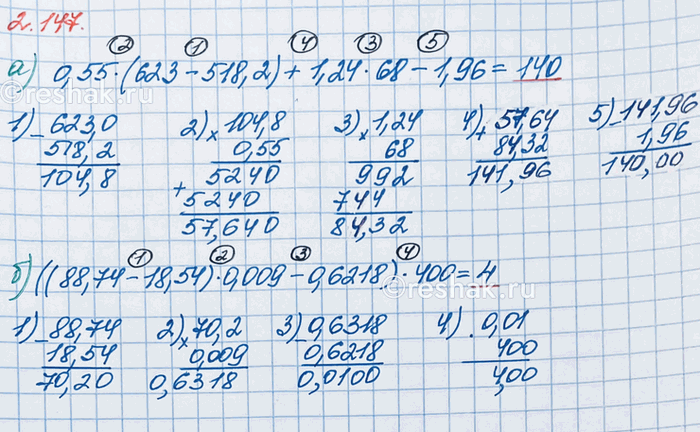 2.147.
② ① ④ ③ ⑤
а) 0,55·(623-518,2)+1,24·68-1,96=140
1) 623,0 2) 104,8 3) 1,24 4) 57,64 5) 141,96
- 518,2 × 0,55 × 68 + 84,32 - 1,96
104,8 5240 992 141,96 140,00
+ 5240 744
57,640 84,32
① ② ③ ④
б) ((88,74-18,54)·0,009-0,6218)·400=4
1) 88,74 2) 70,2 3) 0,6318 4) 0,01
- 18,54 × 0,009 - 0,6218 · 400
70,20 0,6318 0,0100 4,00
reshak.ru
reshak.ru